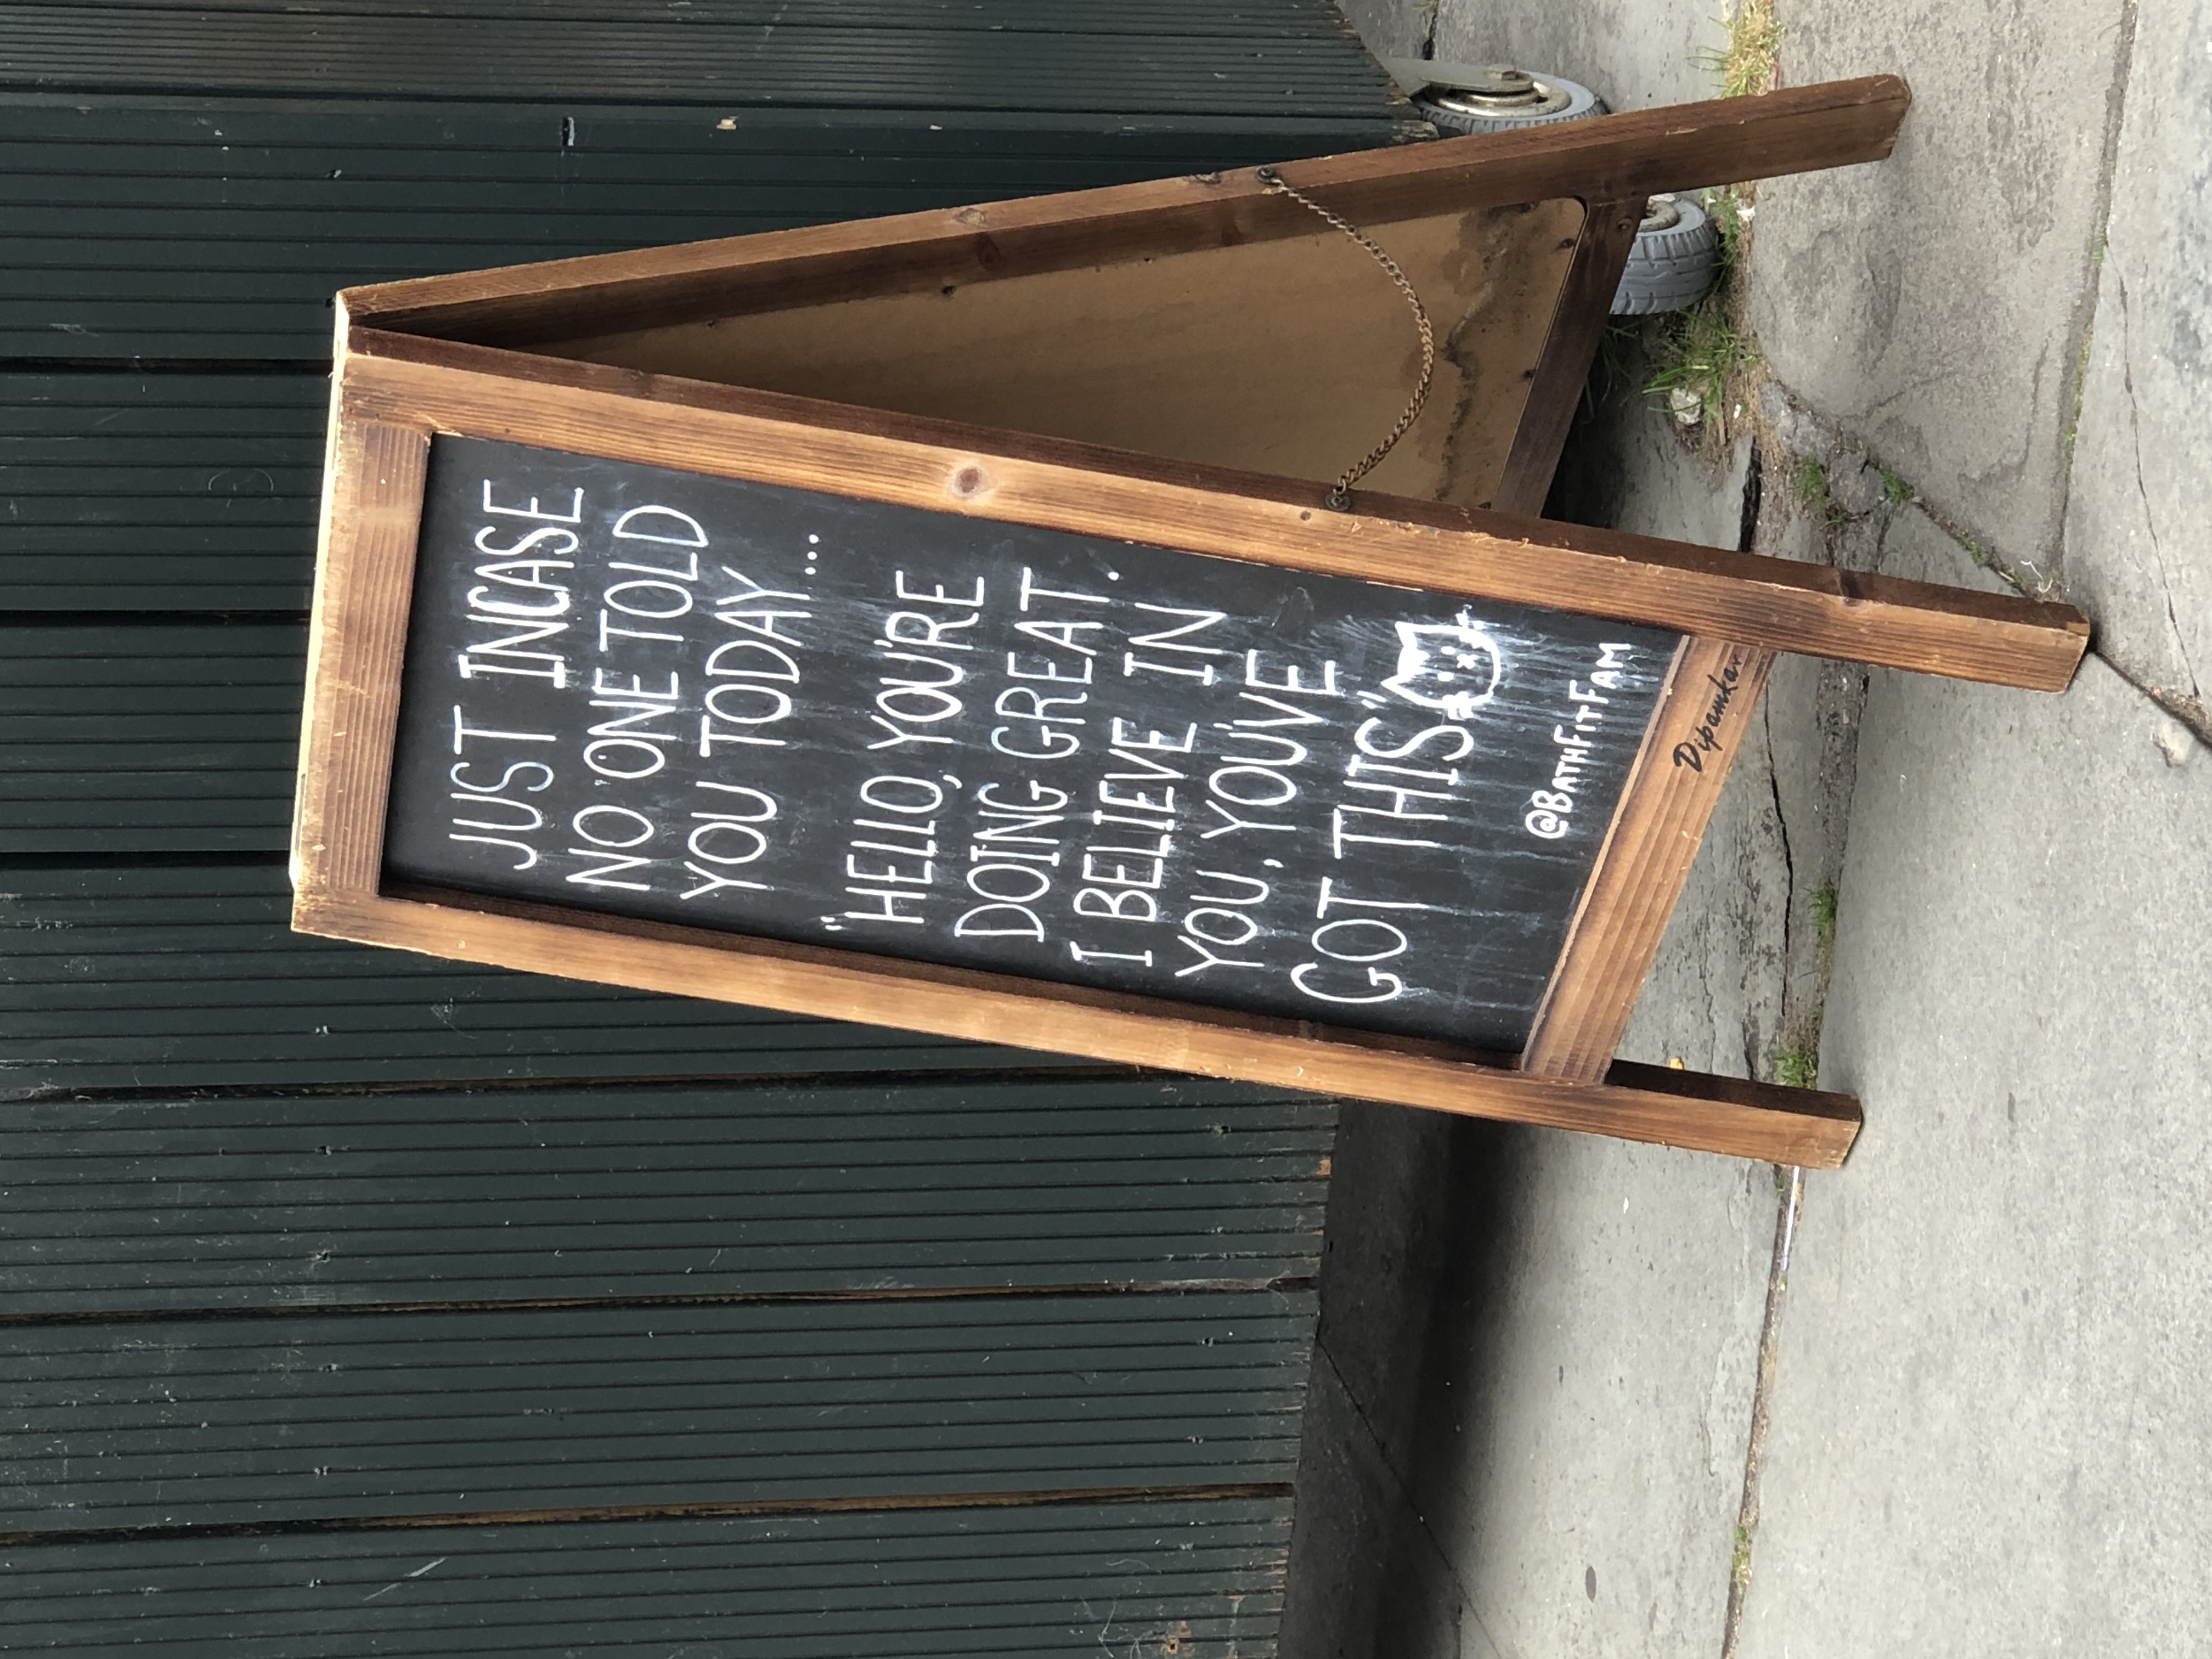 JUST INCASE
NO ONE TOLD
YOU TODAY...
"HELLO, YOU'RE
DOING GREAT.
I BELIEVE IN
YOU, YOU'VE
GOT THIS"
@BATHFITFAM
Dipamkar